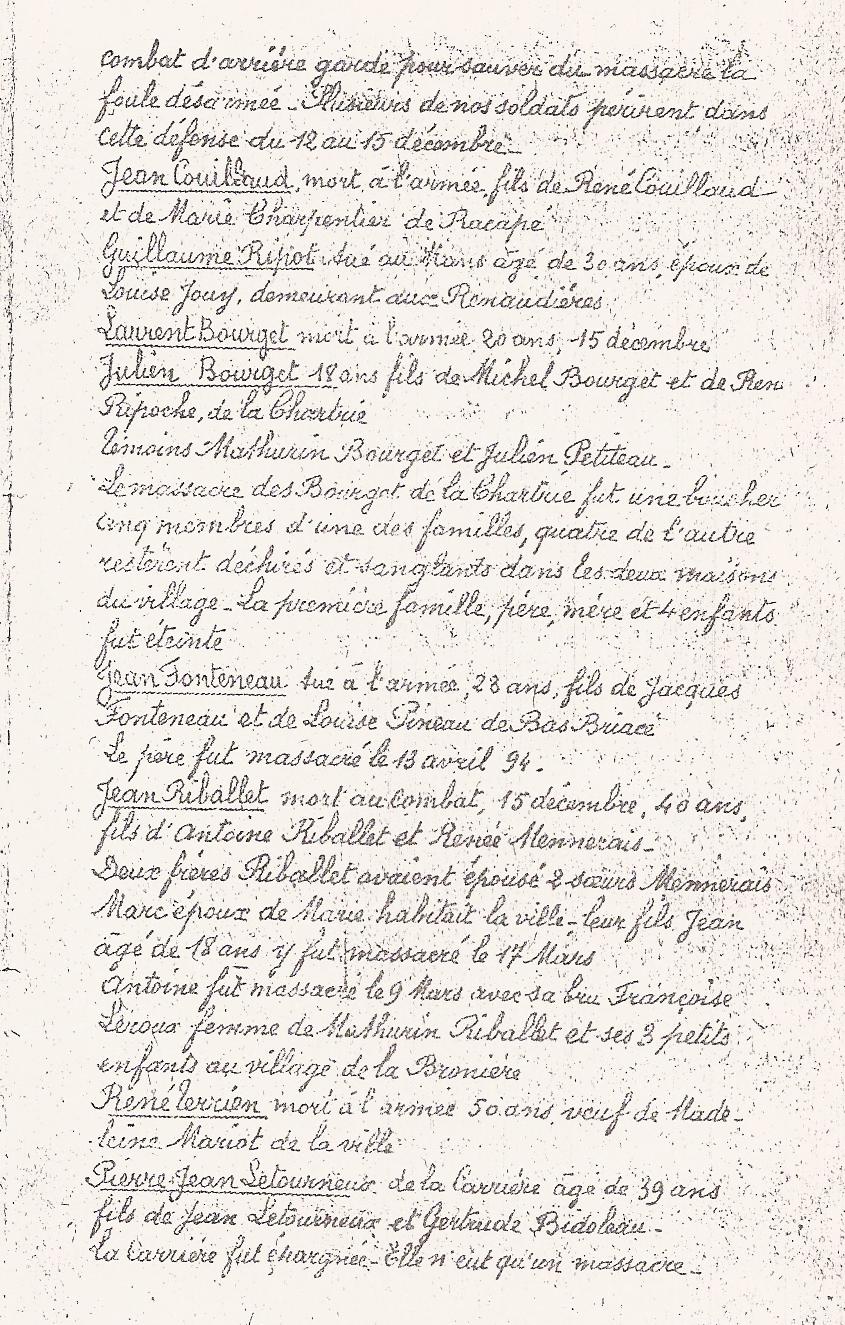 combat d'arrière garde pour sauver du massacre la
foule désarmée - Plusieurs de nos soldats périrent dans
cette défense du 12 au 15 décembre -
Jean Couillaud, mort à l'armée, fils de René Couillaud
et de Marie Charpentier de Racapé
Guillaume Ripot tué au Mans âgé de 30 ans, époux de
Louise Jouy, demeurant aux Renaudières
Laurent Bourget mort à l'armée 20 ans, 15 décembre
Julien Bourget 18 ans fils de Michel Bourget et de Ren
Ripoche, de la Chartrie
témoins Mathurin Bourget et Julien Petiteau -
Le massacre des Bourget de la Chartrie fut une boucher
cinq membres d'une des familles, quatre de l'autre
restèrent déchirés et sanglants dans les deux maisons
du village - La première famille, père, mère et 4 enfants
fut éteinte
Jean Fonteneau tué à l'armée, 28 ans, fils de Jacques
Fonteneau et de Louise Pineau de Bas Briacé
Le père fut massacré le 13 avril 94 -
Jean Riballet mort au combat, 15 décembre, 40 ans,
fils d'Antoine Riballet et Renée Mennerais -
Deux frères Riballet avaient épousé 2 sœurs Mennerais
Marc époux de Marie habitait la ville - leur fils Jean
âgé de 18 ans y fut massacré le 17 Mars
Antoine fut massacré le 9 Mars avec sa bru Françoise
Leroux femme de Mathurin Riballet et ses 3 petits
enfants au village de la Bronière
René Terrien mort à l'armée 50 ans, veuf de Made-
leine Mariot de la ville
Pierre-Jean Letourneux de la Carrière âgé de 39 ans
fils de Jean Letourneux et Gertrude Bidoleau -
La Carrière fut épargnée - Elle n'eut qu'un massacre -